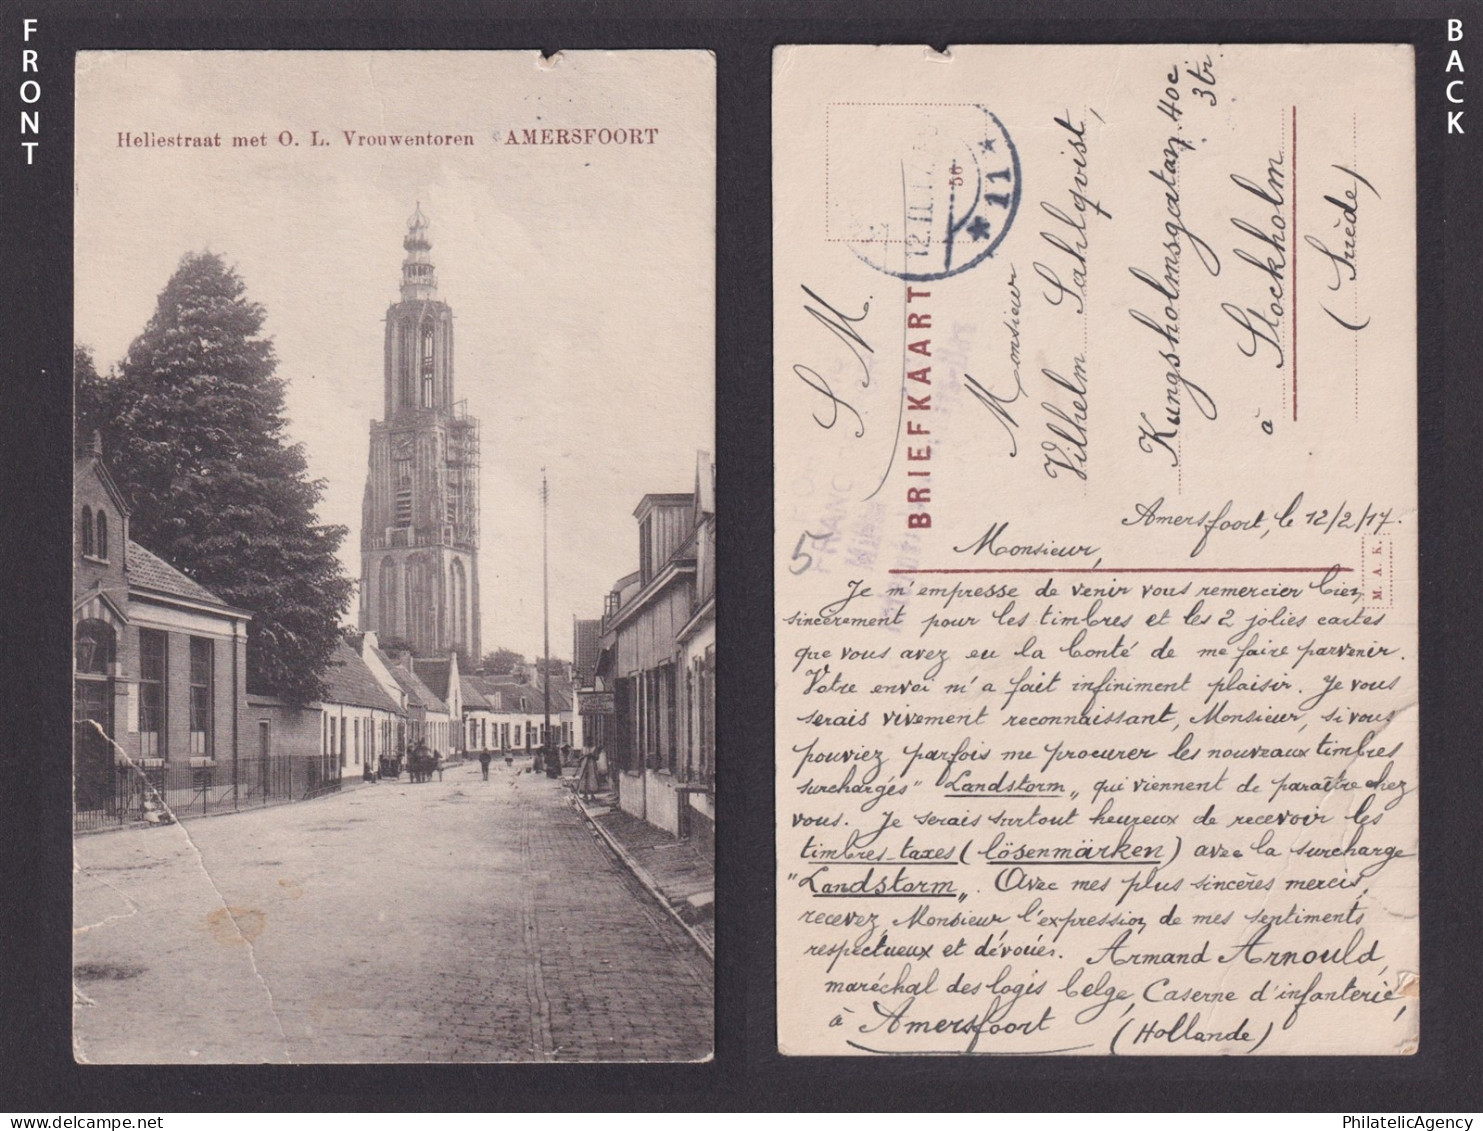 FRONT
BACK
Hellestraat met O. L. Vrouwentoren AMERSFOORT
12.II.17
56
* 11 *
S. M.
BRIEFKAART
FRANC
5
Monsieur
Vilhelm Sahlqvist,
Kungsholmsgatan 40c
3 tr.
à Stockholm
(Suède)
M. A. K.
Amersfoort, le 12/2/17.
Monsieur,
Je m'empresse de venir vous remercier bien
sincèrement pour les timbres et les 2 jolies cartes
que vous avez eu la bonté de me faire parvenir.
Votre envoi m'a fait infiniment plaisir. Je vous
serais vivement reconnaissant, Monsieur, si vous
pouviez parfois me procurer les nouveaux timbres
surchargés "Landstorm„ qui viennent de paraître chez
vous. Je serais surtout heureux de recevoir les
timbres-taxes (lösenmärken) avec la surcharge
"Landstorm„. Avec mes plus sincères mercis,
recevez, Monsieur l'expression de mes sentiments
respectueux et dévoués. Armand Arnould,
maréchal des logis belge, Caserne d'infanterie,
à Amersfoort (Hollande)
PhilatelicAgency.com